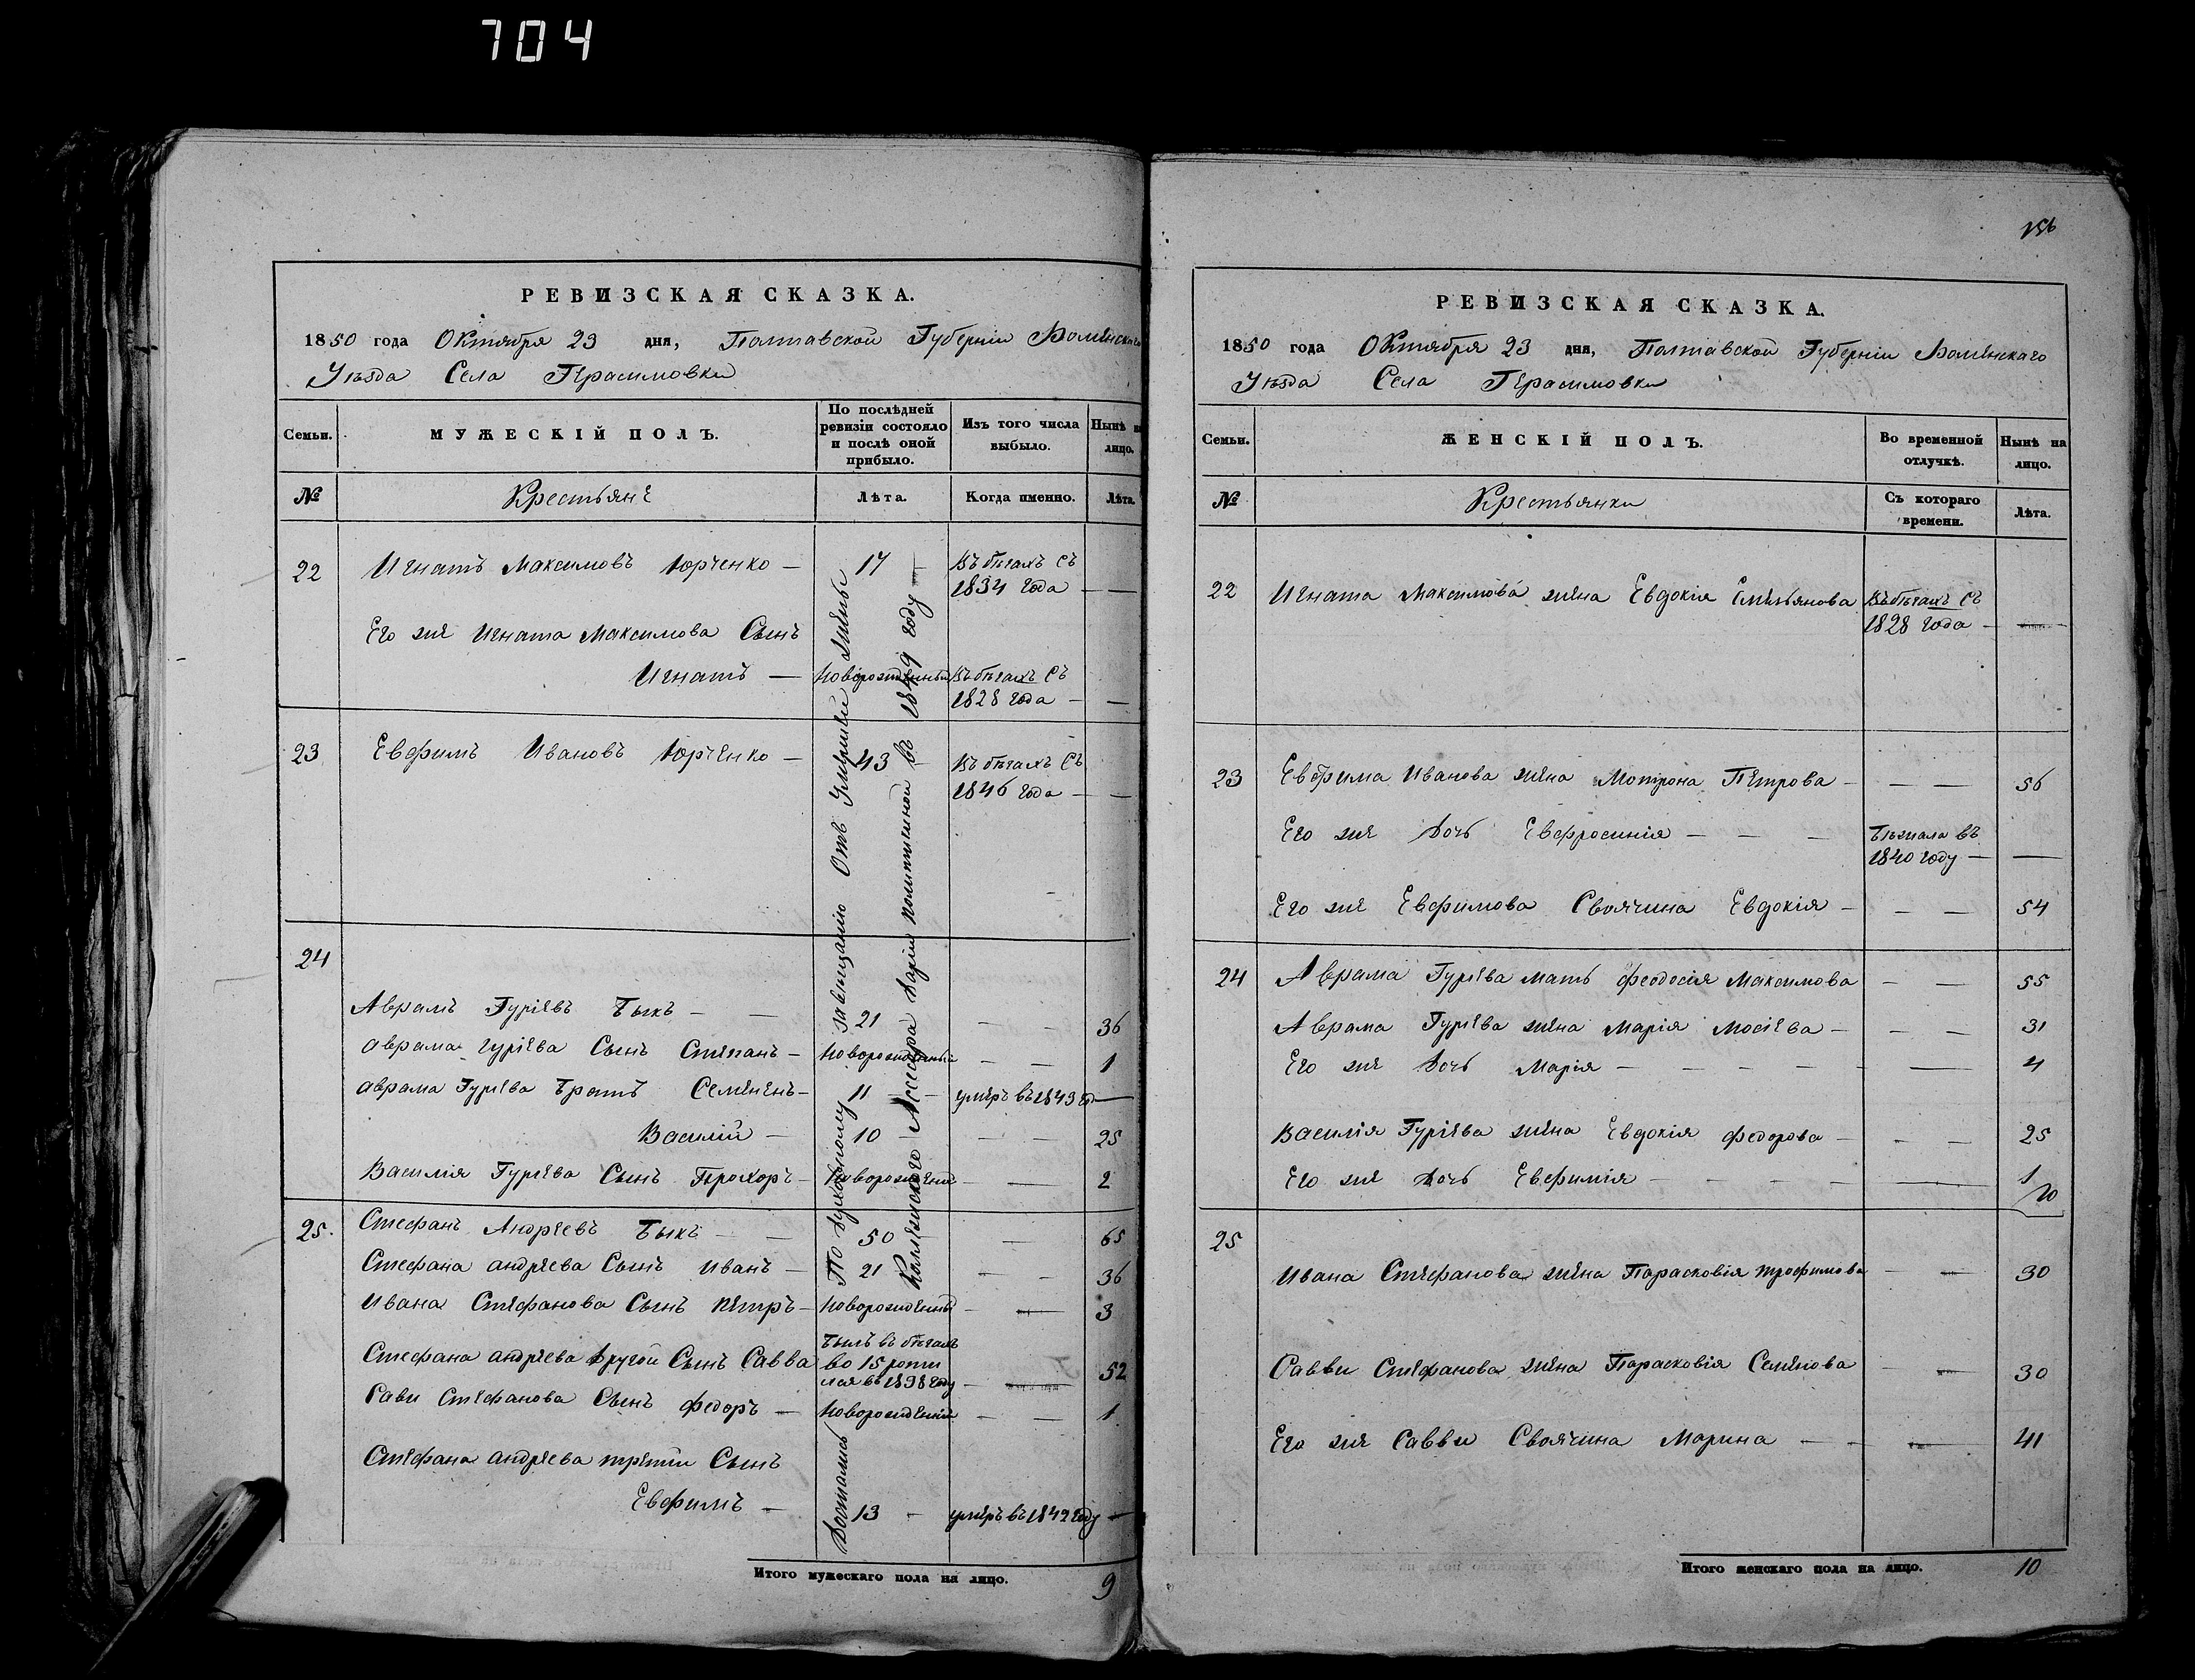 704
РЕВИЗСКАЯ СКАЗКА.
1850 года Октября 23 дня, Полтавской Губерніи Роменскаго
Уѣзда Села Герасимовки
Семьи.
МУЖЕСКІЙ ПОЛЪ.
По послѣдней ревизіи состояло и послѣ оной прибыло.
Изъ того числа выбыло.
Нынѣ на лицо.
№ Крестьяне Лѣта. Когда именно. Лѣта.
22 Игнатъ Максимовъ Юрченко — 17 — Въ бѣгахъ съ 1834 года — —
Его же Игната Максимова Сынъ
Игнатъ — Новорожденный Въ бѣгахъ съ 1828 года — —
23 Евфимъ Ивановъ Юрченко — 43 — Въ бѣгахъ съ 1846 года — —
24
Аврамъ Гуріевъ Быкъ — — 21 — — — 36
Аврама Гуріева Сынъ Степанъ — Новорожденный — — 1
Аврама Гуріева Братъ Семенъ — 11 — умеръ въ 1843 го —
Василій — 10 — — — 25
Василія Гуріева Сынъ Прохоръ — Новорожденый — — 2
25. Стефанъ Андреевъ Быкъ — — 50 — — 65
Стефана Андреева Сынъ Иванъ — 21 — — 36
Ивана Стефанова Сынъ Петръ — Новорожденый — — 3
Стефана Андреева другой Сынъ Савва Былъ въ бѣгахъ во 15 роти лся въ 1838 году — — 52
Сави Стефанова Сынъ Федоръ — Новорожденый — — 1
Стефана Андреева третій Сынъ
Евфимъ — 13 — умеръ въ 1842 году —
Достались По духовному завещанію Отъ Умершей жены
Коллежскаго Ассесора Маріи 1849 году
Итого мужескаго пола на лицо. 9
156
РЕВИЗСКАЯ СКАЗКА.
1850 года Октября 23 дня, Полтавской Губерніи Роменскаго
Уѣзда Села Герасимовки
Семьи.
ЖЕНСКІЙ ПОЛЪ.
Во временной отлучкѣ.
Нынѣ на лицо.
№ Крестьянки Съ котораго времени. Лѣта.
22 Игната Максимова жена Евдокія Емельянова Въ бѣгахъ съ 1828 года — —
23 Евфима Иванова жена Мотрона Петрова — — — 56
Его же Дочь Евфросинія — — — Бѣжала въ 1840 году — —
Его же Евфимова Своячина Евдокія — — — 54
24 Аврама Гуріева мать Феодосія Максимова — — 55
Аврама Гуріева жена Марія Мосіева — — — 31
Его же Дочь Марія — — — — — — 4
Василія Гуріева жена Евдокія Федорова — — — 25
Его же Дочь Евфимія — — — — — 1
10
25
Ивана Стефанова жена Парасковія Трофимова — — 30
Савви Стефанова жена Парасковія Семенова — — 30
Его же Савви Своячина Марина — — — 41
Итого женскаго пола на лицо. 10